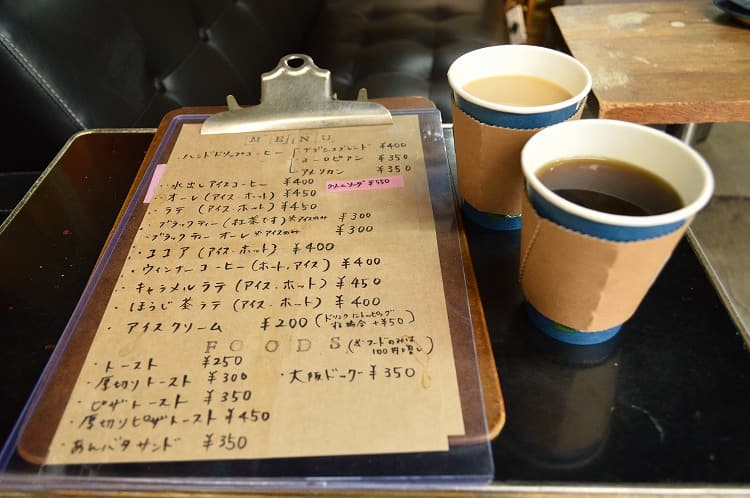 MENU
・ハンドドリップコーヒー ブレンド ¥400
ヨーロピアン ¥350
アメリカン ¥350
・水出しアイスコーヒー ¥400
クリームソーダ ¥550
・オーレ(アイス・ホット) ¥450
・ラテ(アイス・ホット) ¥450
・ブラックティー(紅茶です)※アイスのみ ¥300
・ブラックティーオーレ ※アイスのみ ¥300
・ココア(アイス・ホット) ¥400
・ウィンナーコーヒー(ホット・アイス) ¥400
・キャラメルラテ(アイス・ホット) ¥450
・ほうじ茶ラテ(アイス・ホット) ¥400
・アイスクリーム ¥200(ドリンクにトッピング
+¥50)
FOODS
100円
・トースト ¥250
・厚切りトースト ¥300 ・大阪ドッグ ¥350
・ピザトースト ¥350
・厚切りピザトースト ¥450
・あんバタサンド ¥350